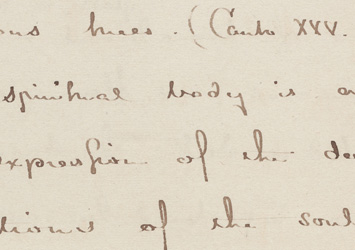 ous hues. (Canto XXV.
spiritual body is a
expression of the de
tions of the soul